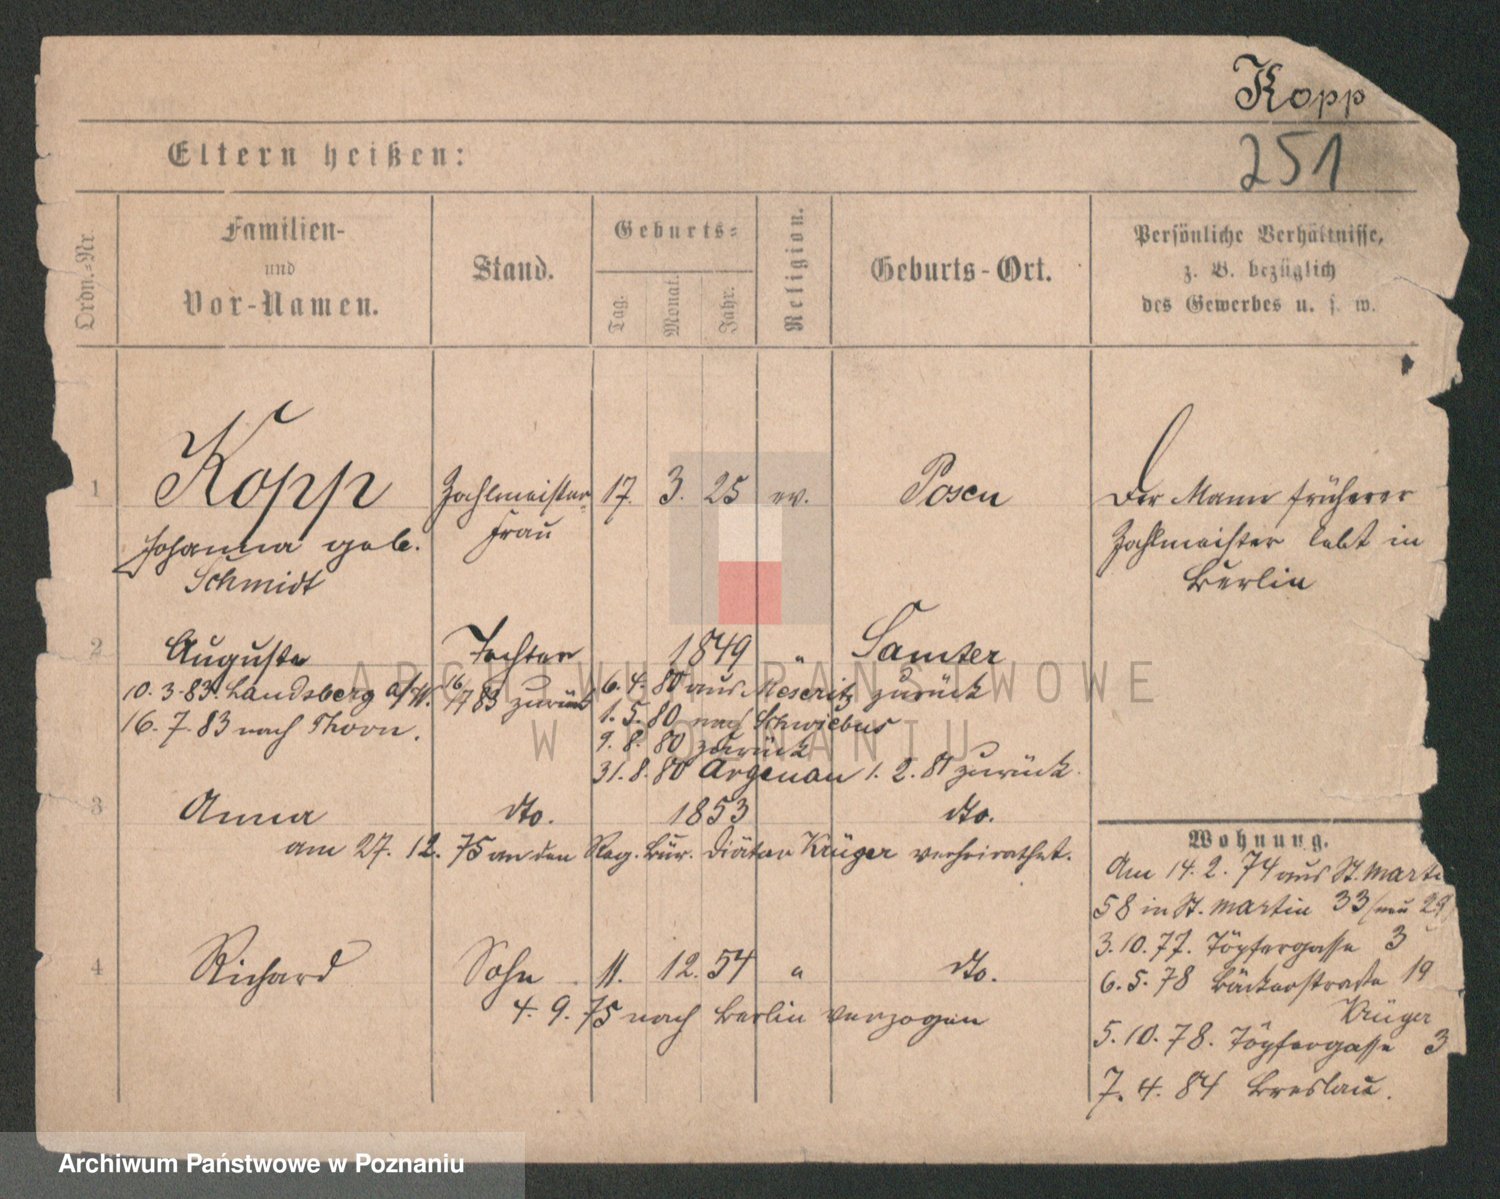 Kopp
251
Eltern heißen:
Ordn.-Nr.
Familien-
und
Vor-Namen.
Stand.
Geburts-
Tag.
Monat.
Jahr.
Religion.
Geburts-Ort.
Persönliche Verhältnisse,
z. B. bezüglich
des Gewerbes u. s. w.
1 Kopp Zahlmeister 17. 3. 25 ev. Posen Der Mann früherer
Johanna geb. Frau Zahlmeister lebt in
Schmidt Berlin
2 Auguste Tochter 1849 " Samter
10. 3. 83. Landsberg a/W. 16/7 83 zurück 6. 4. 80 aus Meseritz zurück
16. 7. 83 nach Thorn. 1. 5. 80 nach Schwiebus
9. 8. 80 zurück
31. 8. 80 Argenau 1. 2. 81 zurück.
3 Anna dto. 1853 dto.
am 27. 12. 75 an den Reg. Bür. Diätar Krüger verheirathet.
4 Richard Sohn 11. 12. 54 " dto.
4. 9. 75 nach Berlin verzogen
Wohnung.
Am 14. 2. 74 aus St. Martin
58 in St. Martin 33 (neu 29)
3. 10. 77. Töpfergasse 3
6. 5. 78 Bäckerstraße 19
Krüger
5. 10. 78. Töpfergasse 3
7. 4. 84 Breslau.
ARCHIWUM PAŃSTWOWE
W POZNANIU
Archiwum Państwowe w Poznaniu